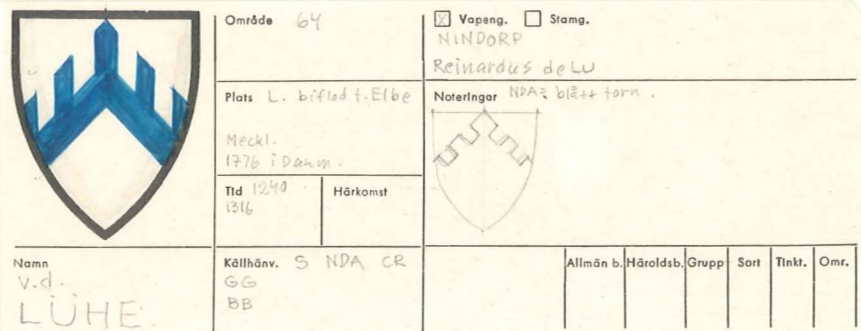 Område 64
☒ Vapeng. ☐ Stamg.
NINDORP
Reinardus de Lu
Plats L. biflod t. Elbe
Meckl.
1776 i Danm.
Noteringar NDA: blått torn.
Tid 1240
1316
Härkomst
Namn
v.d.
LÜHE
Källhänv. S NDA CR
GG
BB
Allmän b. Häroldsb. Grupp Sort Tinkt. Omr.